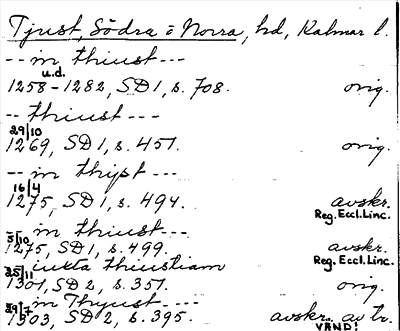 Tjust, Södra o Norra, hd, Kalmar l.
-- in thiust ---
u.d.
1258-1282, SD 1, s. 708. orig.
-- thiust ---
29/10
1269, SD 1, s. 451. orig.
-- in thyst ---
16/4
1275, SD 1, s. 494. avskr.
Reg. Eccl. Linc.
-- in thiust ---
5/10
1275, SD 1, s. 499. avskr.
Reg. Eccl. Linc.
-- iuxta thiustiam
25/11
1301, SD 2, s. 351. orig.
-- in Thyust ---
1303, SD 2, s. 395. avskr. av tr.
VÄND!